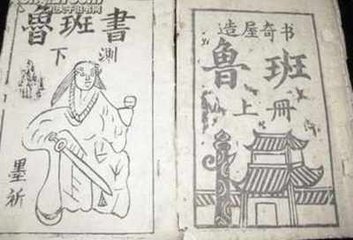 魯班書
下測
墨
造屋奇书
鲁班
上册